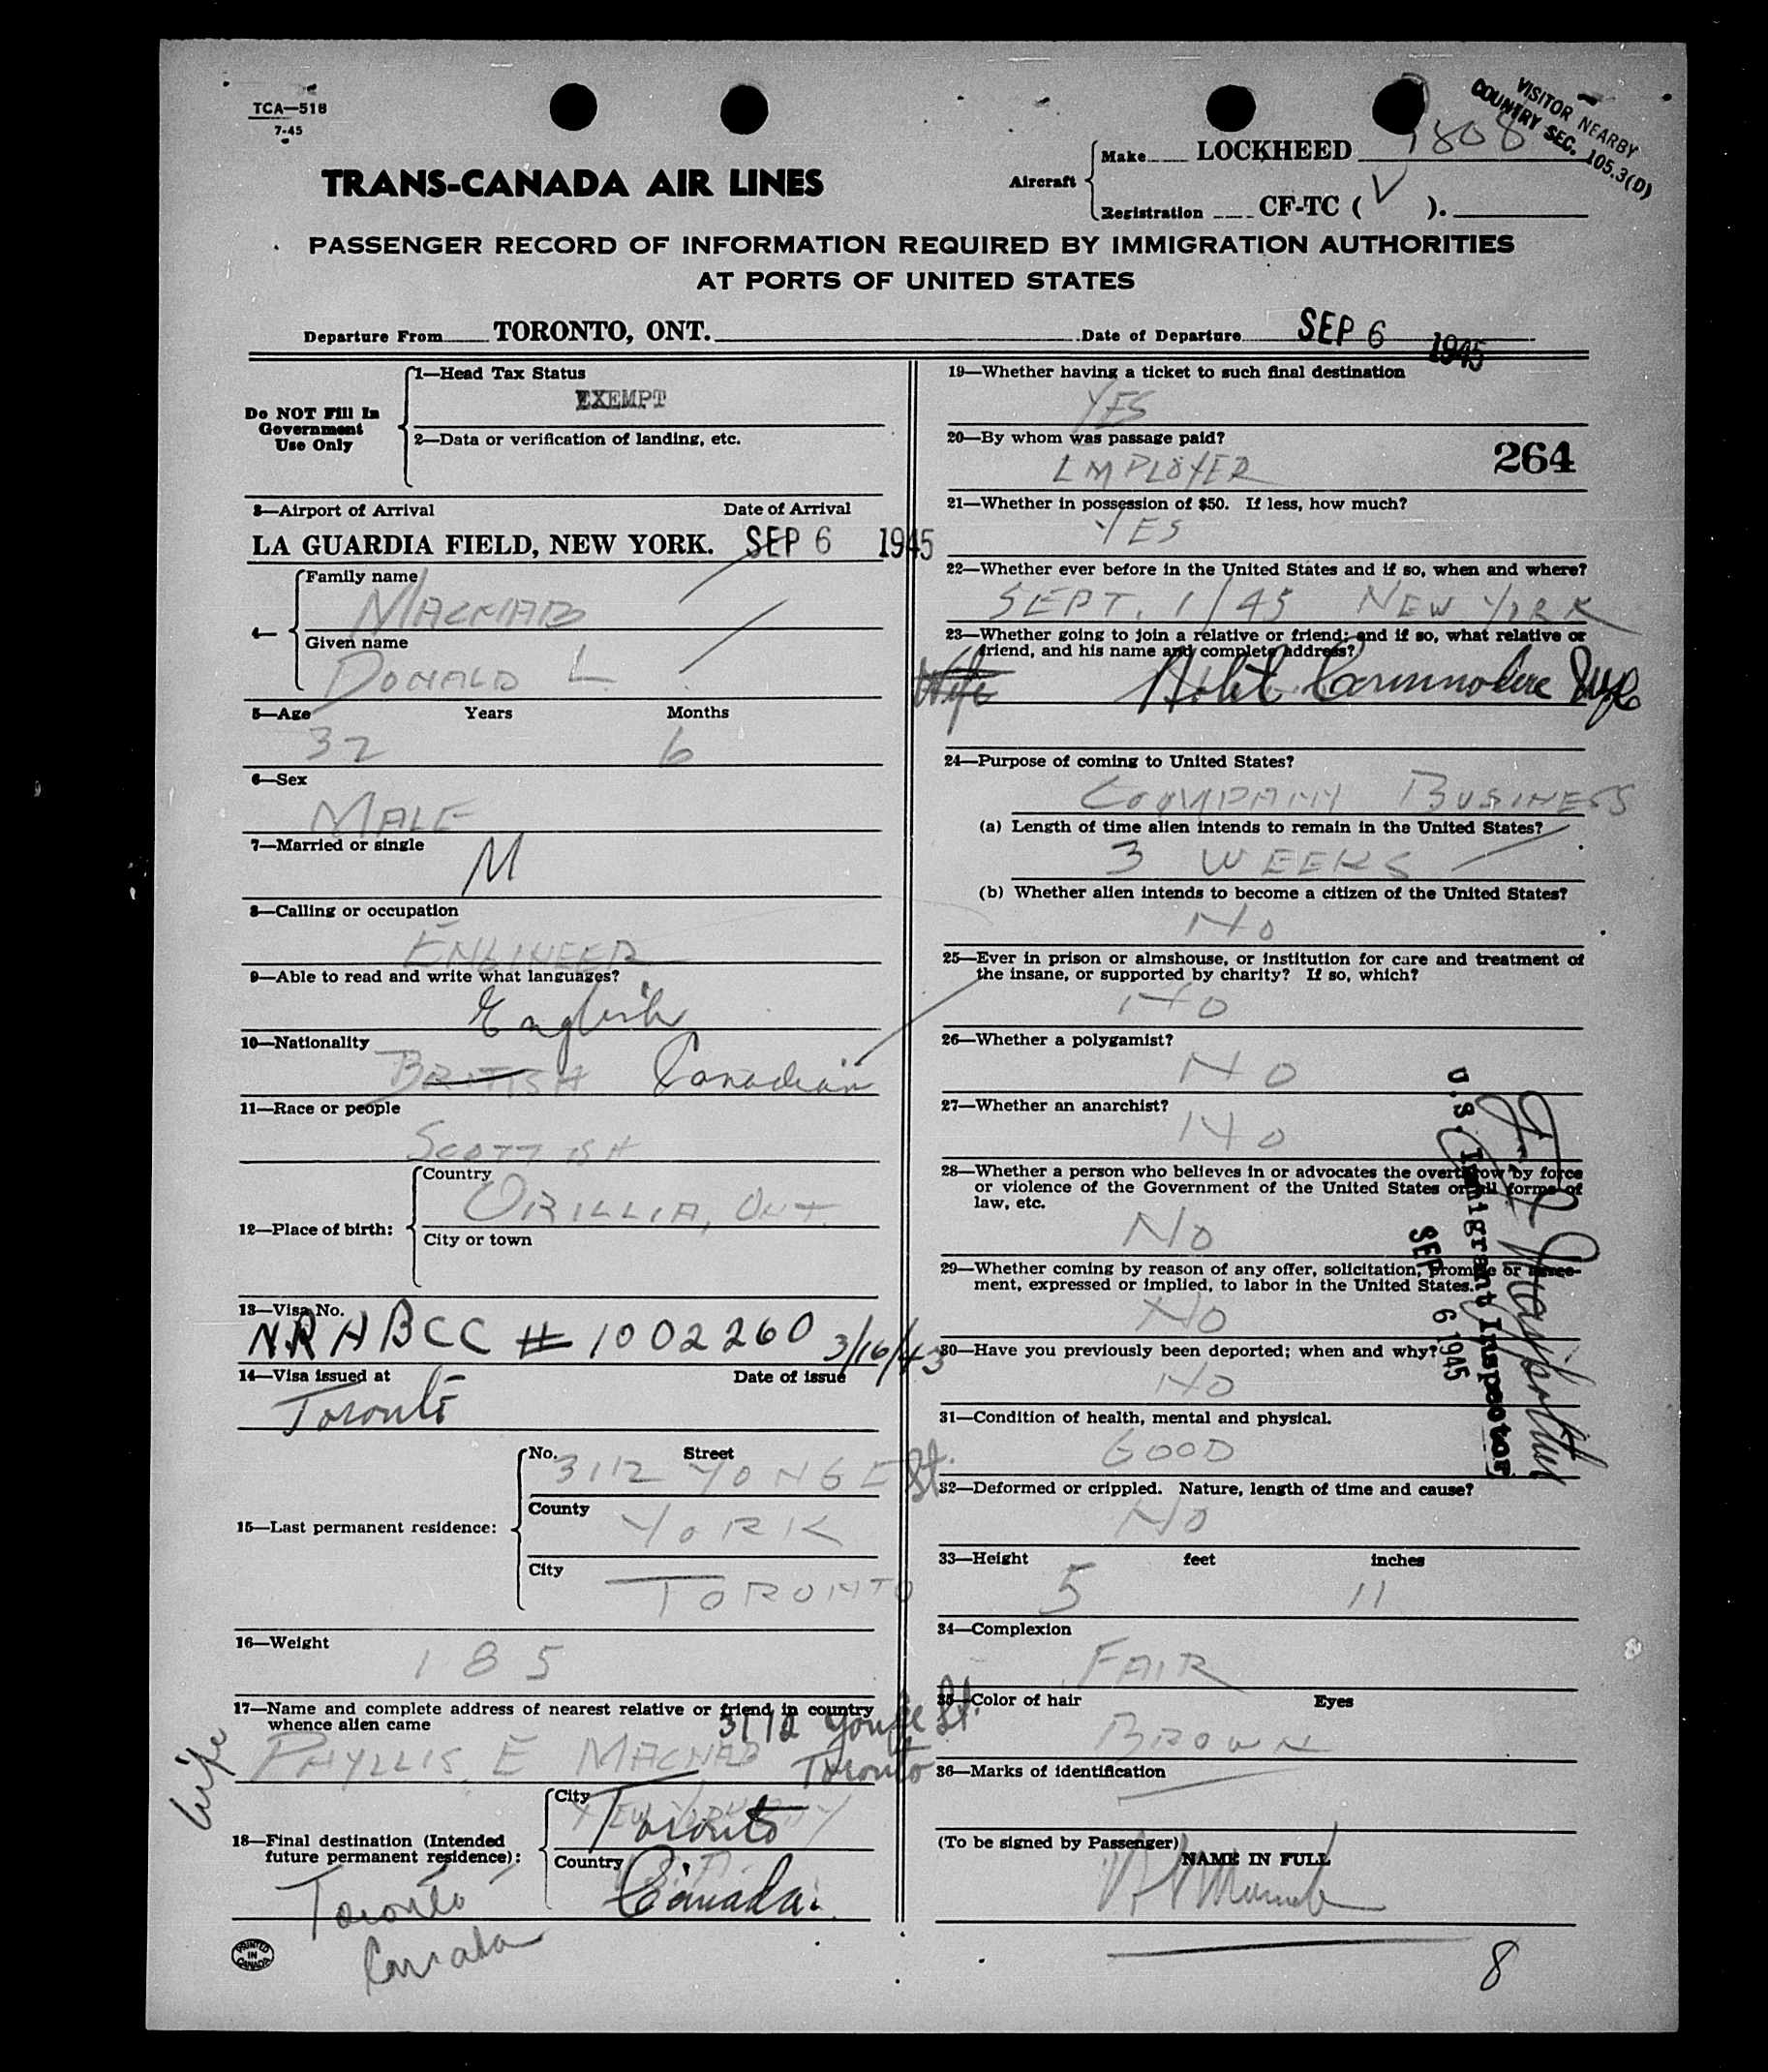 TCA—518
7-45
VISITOR NEARBY
COUNTRY SEC. 105.3(D)
TRANS-CANADA AIR LINES
Aircraft
Make LOCKHEED 1808
Registration CF-TC ( V ).
PASSENGER RECORD OF INFORMATION REQUIRED BY IMMIGRATION AUTHORITIES
AT PORTS OF UNITED STATES
Departure From TORONTO, ONT. Date of Departure SEP 6 1945
Do NOT Fill In
Government
Use Only
1—Head Tax Status
EXEMPT
2—Data or verification of landing, etc.
3—Airport of Arrival Date of Arrival
LA GUARDIA FIELD, NEW YORK. SEP 6 1945
4—
Family name
MACNAB
Given name
DONALD L.
5—Age Years Months
32 6
6—Sex
MALE
7—Married or single
M
8—Calling or occupation
ENGINEER
9—Able to read and write what languages?
English
10—Nationality
BRITISH Canadian
11—Race or people
SCOTTISH
12—Place of birth:
Country
ORILLIA, ONT.
City or town
13—Visa No.
NRABCC # 1002260 3/16/43
14—Visa issued at Date of issue
Toronto
15—Last permanent residence:
No. Street
3112 YONGE St.
County
YORK
City
TORONTO
16—Weight
185
17—Name and complete address of nearest relative or friend in country
whence alien came
3112 Yonge St.
wife PHYLLIS E MACNAB Toronto
18—Final destination (Intended
future permanent residence):
City
NEW YORK CITY
Toronto
Country
Canada.
Toronto
Canada
PRINTED
IN
CANADA
19—Whether having a ticket to such final destination
YES
20—By whom was passage paid?
EMPLOYER
264
21—Whether in possession of $50. If less, how much?
YES
22—Whether ever before in the United States and if so, when and where?
SEPT. 1/45 NEW YORK
23—Whether going to join a relative or friend; and if so, what relative or
friend, and his name and complete address?
Wife Hotel Commodore NYC
24—Purpose of coming to United States?
COMPANY BUSINESS
(a) Length of time alien intends to remain in the United States?
3 WEEKS
(b) Whether alien intends to become a citizen of the United States?
NO
25—Ever in prison or almshouse, or institution for care and treatment of
the insane, or supported by charity? If so, which?
NO
26—Whether a polygamist?
NO
27—Whether an anarchist?
NO
28—Whether a person who believes in or advocates the overthrow by force
or violence of the Government of the United States or all forms of
law, etc.
NO
29—Whether coming by reason of any offer, solicitation, promise or agree-
ment, expressed or implied, to labor in the United States.
NO
30—Have you previously been deported; when and why?
NO
U.S. Immigrant Inspector
SEP 6 1945
31—Condition of health, mental and physical.
GOOD
32—Deformed or crippled. Nature, length of time and cause?
NO
33—Height feet inches
5 11
34—Complexion
FAIR
35—Color of hair Eyes
BROWN
36—Marks of identification
(To be signed by Passenger)
NAME IN FULL
8